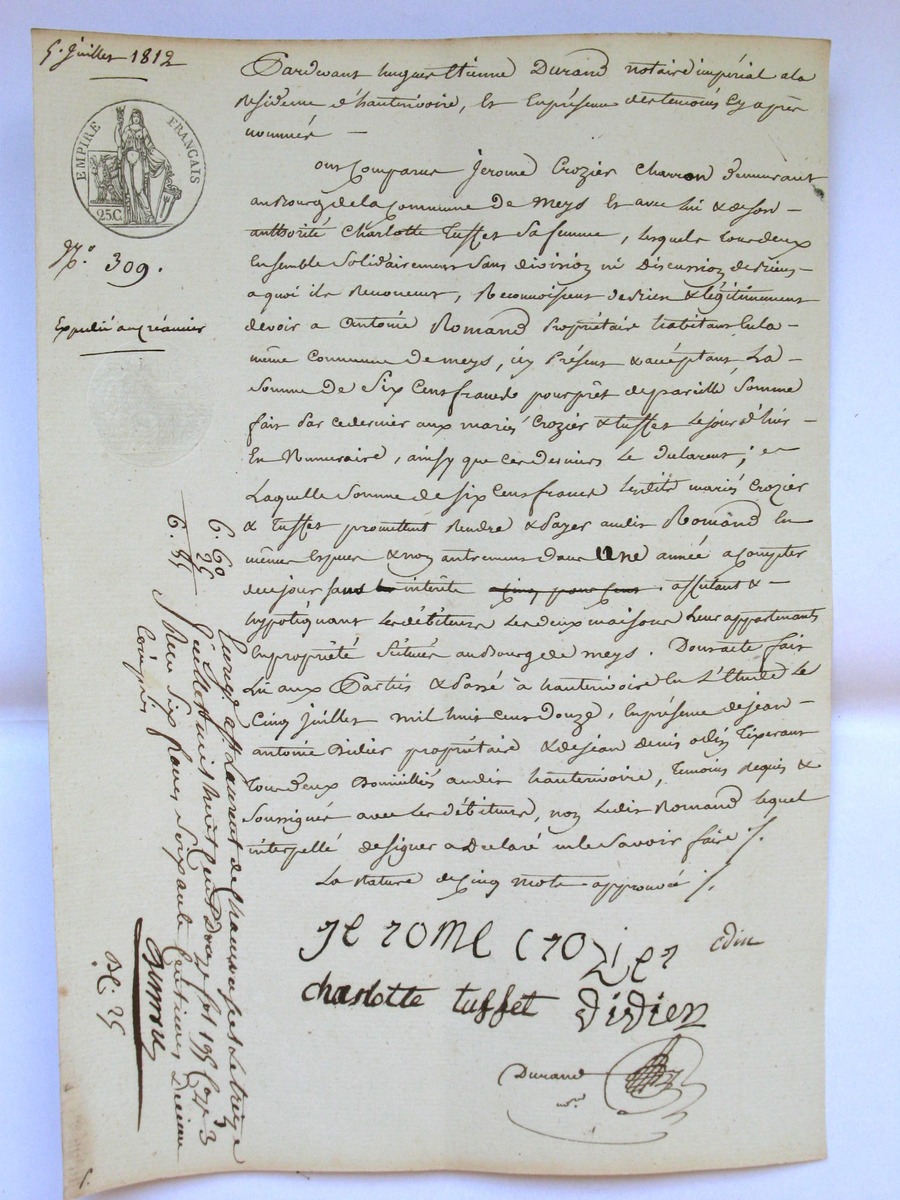 5. Juillet 1812
EMPIRE FRANÇAIS
25C.
N.º 309.
Expédié au créancier
Pardevant hugues Etienne Durand notaire impérial a la
Résidence d'hauterivoire, Et En présence des temoins Cy après
nommés —
ont Comparus Jerome Crozier Charron demeurant
au Bourg de la Commune De meys Et avec lui & de son —
authorité Charlotte Tuffet Sa femme, lesquels tous deux
Ensemble Solidairement Sans division ni Discussion de biens
a quoi ils Renoncent, Reconnoissent devoir & légitimement
devoir a Antoine Romand Propriétaire habitant En la —
même Commune De meys, icy Présent & acceptant, La —
Somme De Six Cent francs pour prêt de pareille Somme
fait Par ce dernier aux mariés Crozier & tuffet Le jour d'hier —
En Numeraire, ainsy que Ces Derniers Le Declarent; et
Laquelle Somme de Six Cent francs Lesdits mariés Crozier
& Tuffet promettent Rendre & Payer audit Romand En
même Espece & non autrement Dans une année a Compter
de ce jour sans intérêts affectant & —
hypotéquant Les débiteurs Les deux maisons Leur appartenants
En propriété Situées au Bourg de meys. Dont acte fait
Lu aux Parties & Passé à hauterivoire En L'Etude Le
Cinq juillet mil huit cent Douze, En présence de jean —
antoine Didier propriétaire & de jean denis Tixerant
Tous deux Domiciliés audit hauterivoire, Temoins Requis &
Soussignés avec Les débiteurs, non Ledit Romand lequel
interpellé de signer a Declaré ne le Savoir faire /.
La Rature de Cinq mots approuvée /.
Jerome Crozier
charlotte tuffet Didier
Durand
nre
6. 60
25
6. 85
Enregé à St Laurent de Chamousset Le treize
Juillet mil huit Cent Douze fol. 195 Cas. 3
Reçu Six francs Soixante Centimes Dixieme
Compris
25